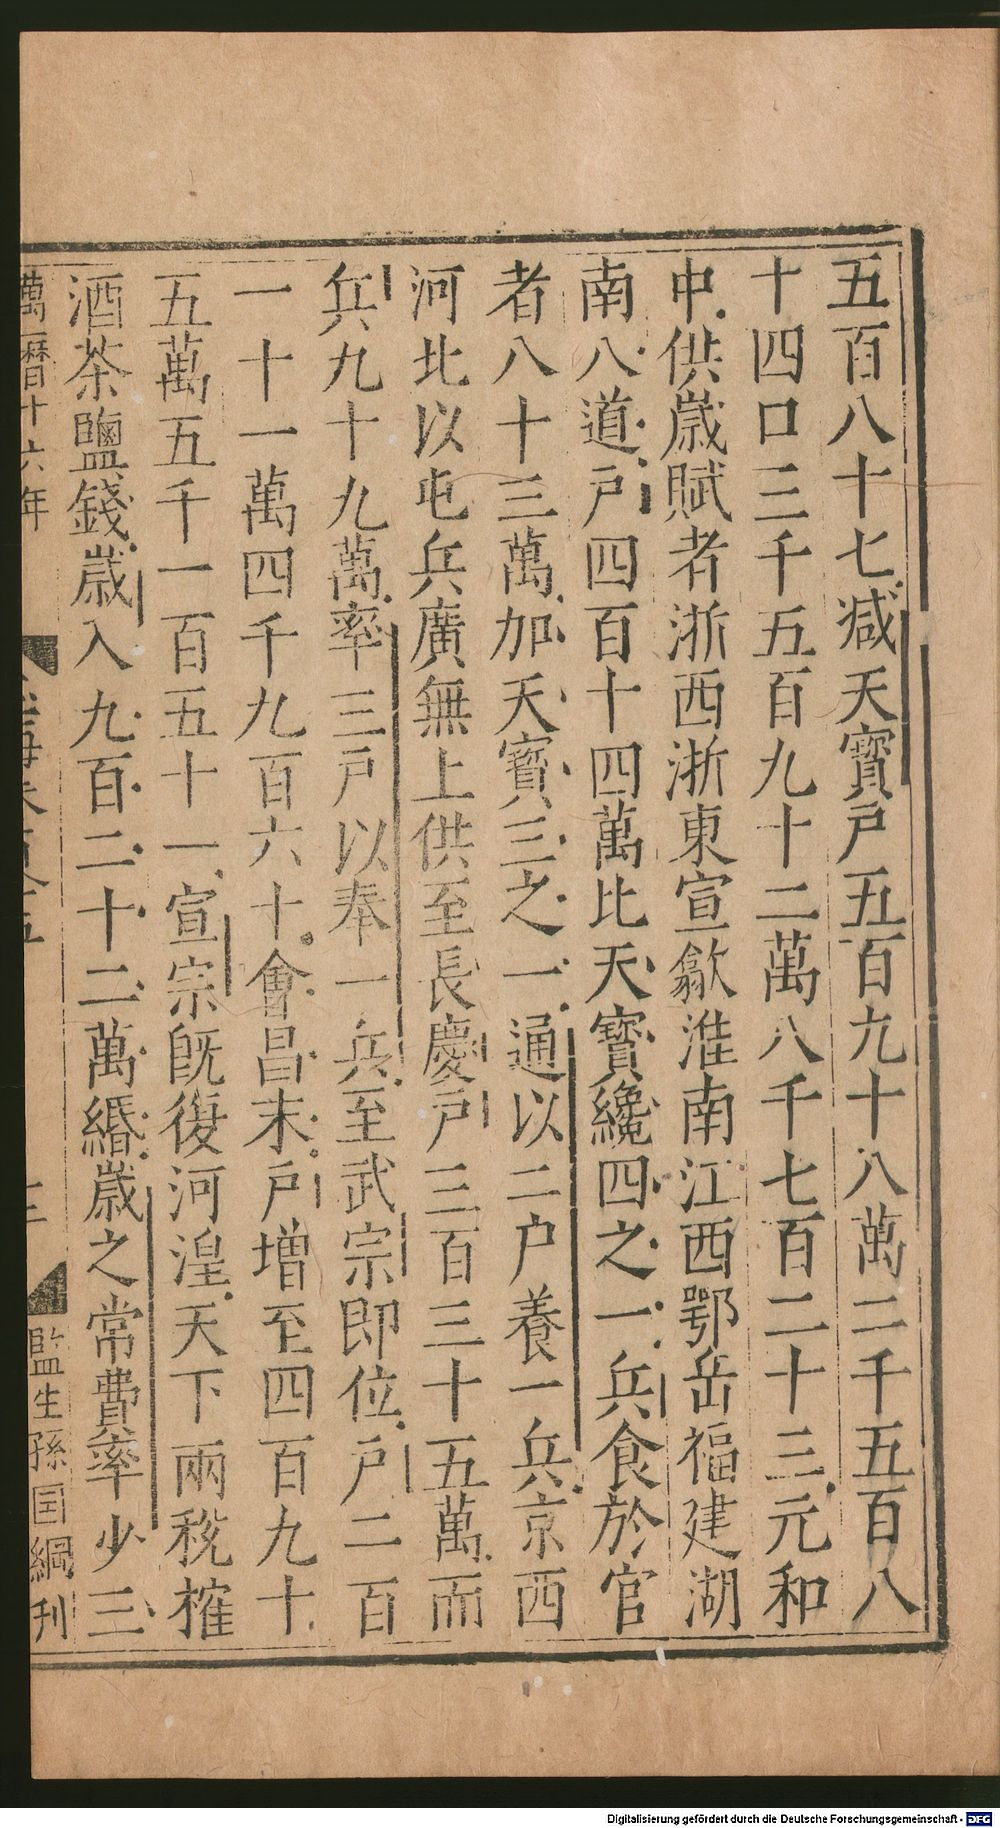 五百八十七減天寳戸五百九十八萬二千五百八
十四口三千五百九十二萬八千七百二十三元和
中供歳賦者浙西浙東宣歙淮南江西鄂岳福建湖
南八道戸四百十四萬比天寳纔四之一兵食於官
者八十三萬加天寳三之一通以二户養一兵京西
河北以屯兵廣無上供至長慶戸三百三十五萬而
兵九十九萬率三戸以奉一兵至武宗即位戸二百
一十一萬四千九百六十會昌末戸增至四百九十
五萬五千一百五十一宣宗既復河湟天下兩稅榷
酒茶鹽錢歳入九百二十二萬緡歳之常費率少三
萬曆十六年
監生孫囯綱刊
Digitalisierung gefördert durch die Deutsche Forschungsgemeinschaft - DFG